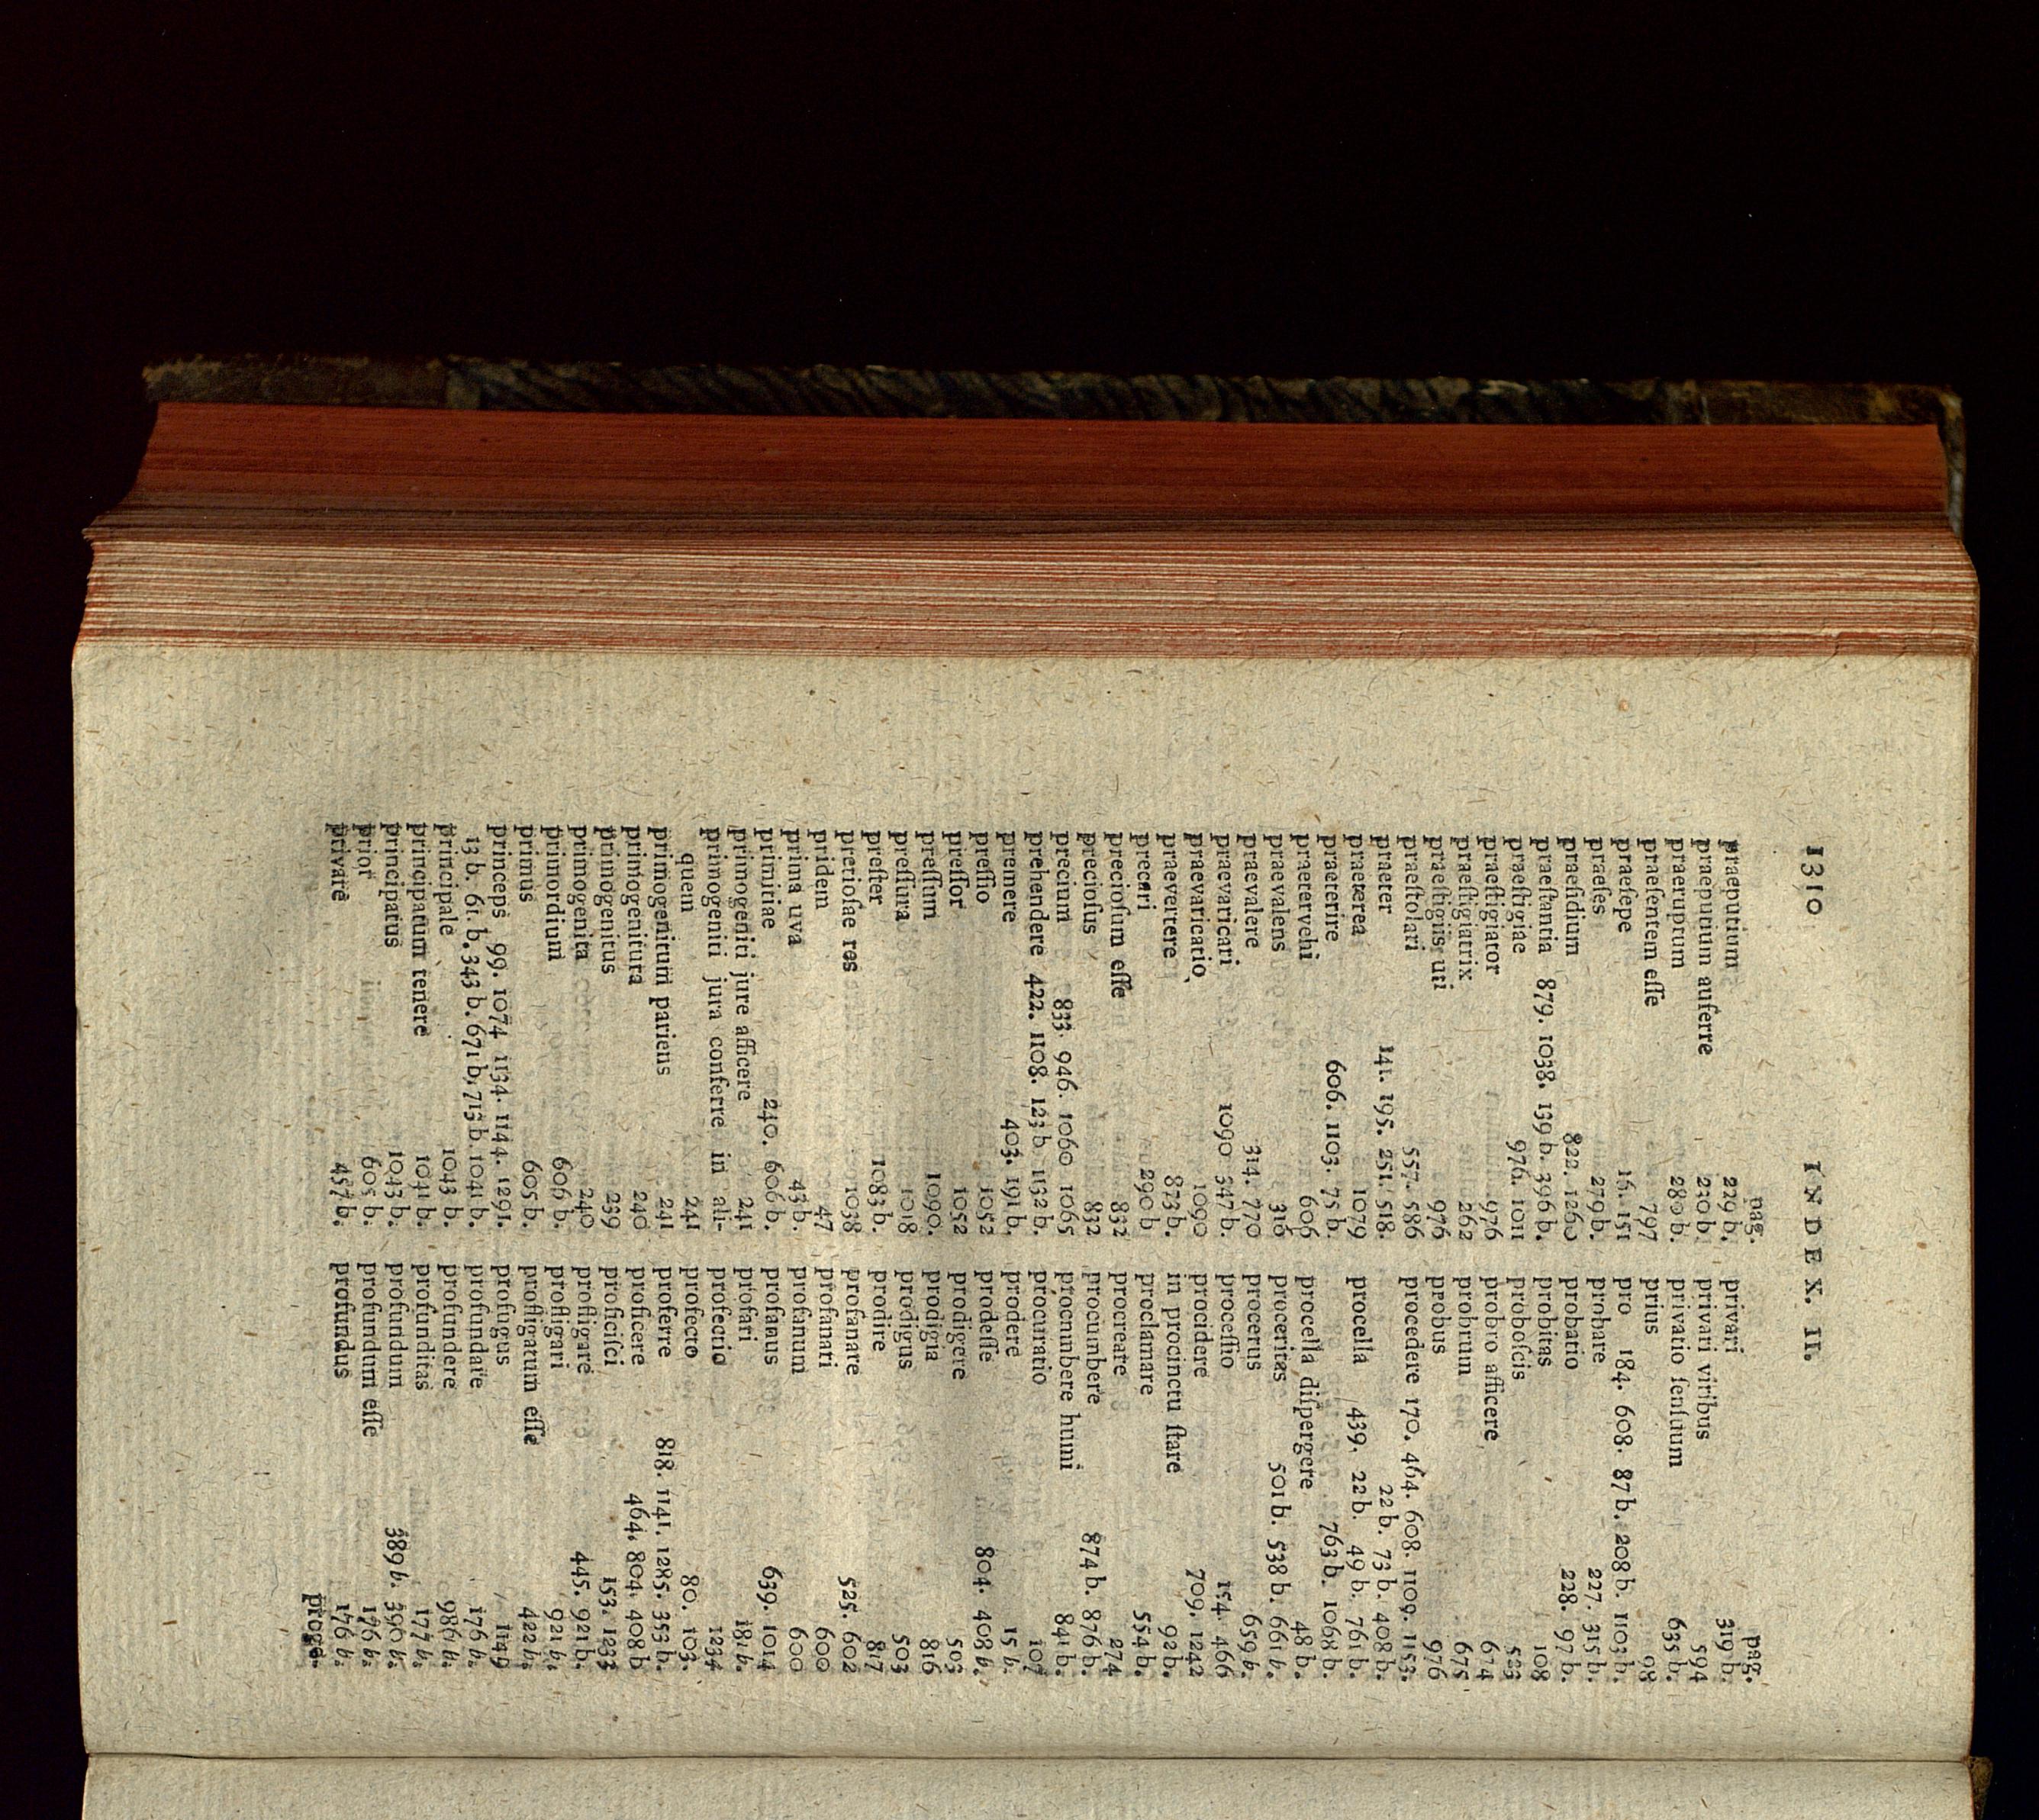 1310 INDEX. II.
pag.
praeputium 229 b.
praeputium auferre 230 b.
praeruptum 280 b.
praeſentem eſſe 797
praeſepe 16. 151
praeſes 279 b.
praeſidium 822. 1260
praeſtantia 879. 1038. 139 b. 396 b.
praeſtigiae 976. 1011
praeſtigiator 976
praeſtigiatrix 262
praeſtigiis uti 976
praeſtolari 557. 586
praeter 141. 195. 251. 518.
praeterea 1079
praeterire 606. 1103. 75 b.
praetervehi 606
praevalens 316
praevalere 314. 770
praevaricari 1090 347 b.
praevaricatio 1090
praevertere 873 b.
precari 290 b
precioſum eſſe 832
precioſus 832
precium 833. 946. 1060 1065
prehendere 422. 1108. 123 b 1132 b.
premere 403. 191 b.
preſſio 1052
preſſor 1052
preſſum 1090.
preſſura 1018
preſter 1083 b.
pretioſae res 1038
pridem 47
prima uva 43 b.
primitiae 240. 606 b.
primogeniti jure afficere 241
primogeniti jura conferre in ali-
quem 241
primogenitum pariens 241
primogenitura 240
primogenitus 239
primogenita 240
primordium 606 b.
primus 605 b.
princeps 99. 1074 1134. 1144. 1291.
13 b. 61. b. 343 b. 671 b, 713 b. 1041 b.
principale 1043 b.
principatum tenere 1041 b.
principatus 1043 b.
prior 605 b.
privare 457 b.
pag.
privari 319 b.
privari viribus 594
privatio ſenſuum 635 b.
prius 98
pro 184. 608. 87 b. 208 b. 1103 b.
probare 227. 315 b.
probatio 228. 97 b.
probitas 108
proboſcis 523
probro afficere 674
probrum 675
probus 976
procedere 170. 464. 608. 1109. 1153.
22 b. 73 b. 408 b.
procella 439. 22 b. 49 b. 761 b.
763 b. 1068 b.
procella diſpergere 48 b.
proceritas 501 b. 538 b. 661 b.
procerus 659 b.
proceſſio 154. 466
procidere 709. 1242
in procinctu ſtare 92 b.
proclamare 554 b.
procreare 274
procumbere 874 b. 876 b.
procumbere humi 841 b.
procuratio 107
prodere 15 b.
prodeſſe 804. 408 b.
prodigere 503
prodigia 816
prodigus 503
prodire 817
profanare 525. 602
profanari 600
profanum 600
profanus 639. 1014
profari 181 b.
profectio 1234
profecto 80. 103.
proferre 818. 1141. 1285. 353 b.
proficere 464. 804. 408 b
proficiſci 153. 1233
profligare 445. 921 b.
profligari 921 b.
profligatum eſſe 422 b.
profugus 1149
profundare 176 b.
profundere 986 b.
profunditas 177 b.
profundum 389 b. 390 b.
profundum eſſe 176 b.
profundus 176 b.